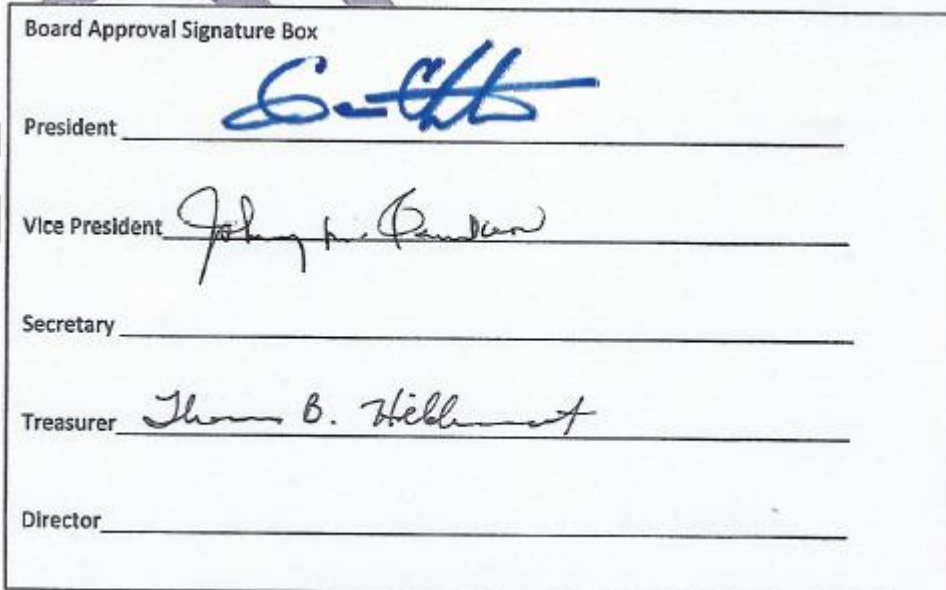 Board Approval Signature Box
President
Vice President Johnny
Secretary
Treasurer Thomas B.
Director